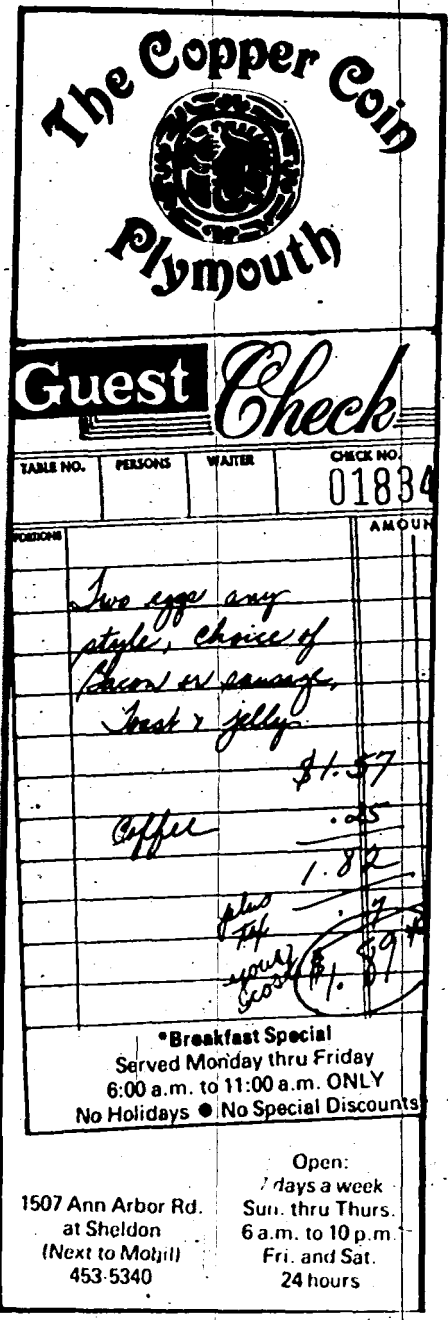 The Copper Coin
Plymouth
Guest Check
TABLE NO. PERSONS WAITER CHECK NO.
01834
PORTIONS AMOUN
Two eggs any
style, choice of
Bacon or sausage,
Toast & jelly
$1.57
Coffee .25
1.82
plus
tax .7
your
cost $1.89*
*Breakfast Special
Served Monday thru Friday
6:00 a.m. to 11:00 a.m. ONLY
No Holidays ● No Special Discounts
1507 Ann Arbor Rd.
at Sheldon
(Next to Mobil)
453-5340
Open:
7 days a week
Sun. thru Thurs.
6 a.m. to 10 p.m.
Fri. and Sat.
24 hours